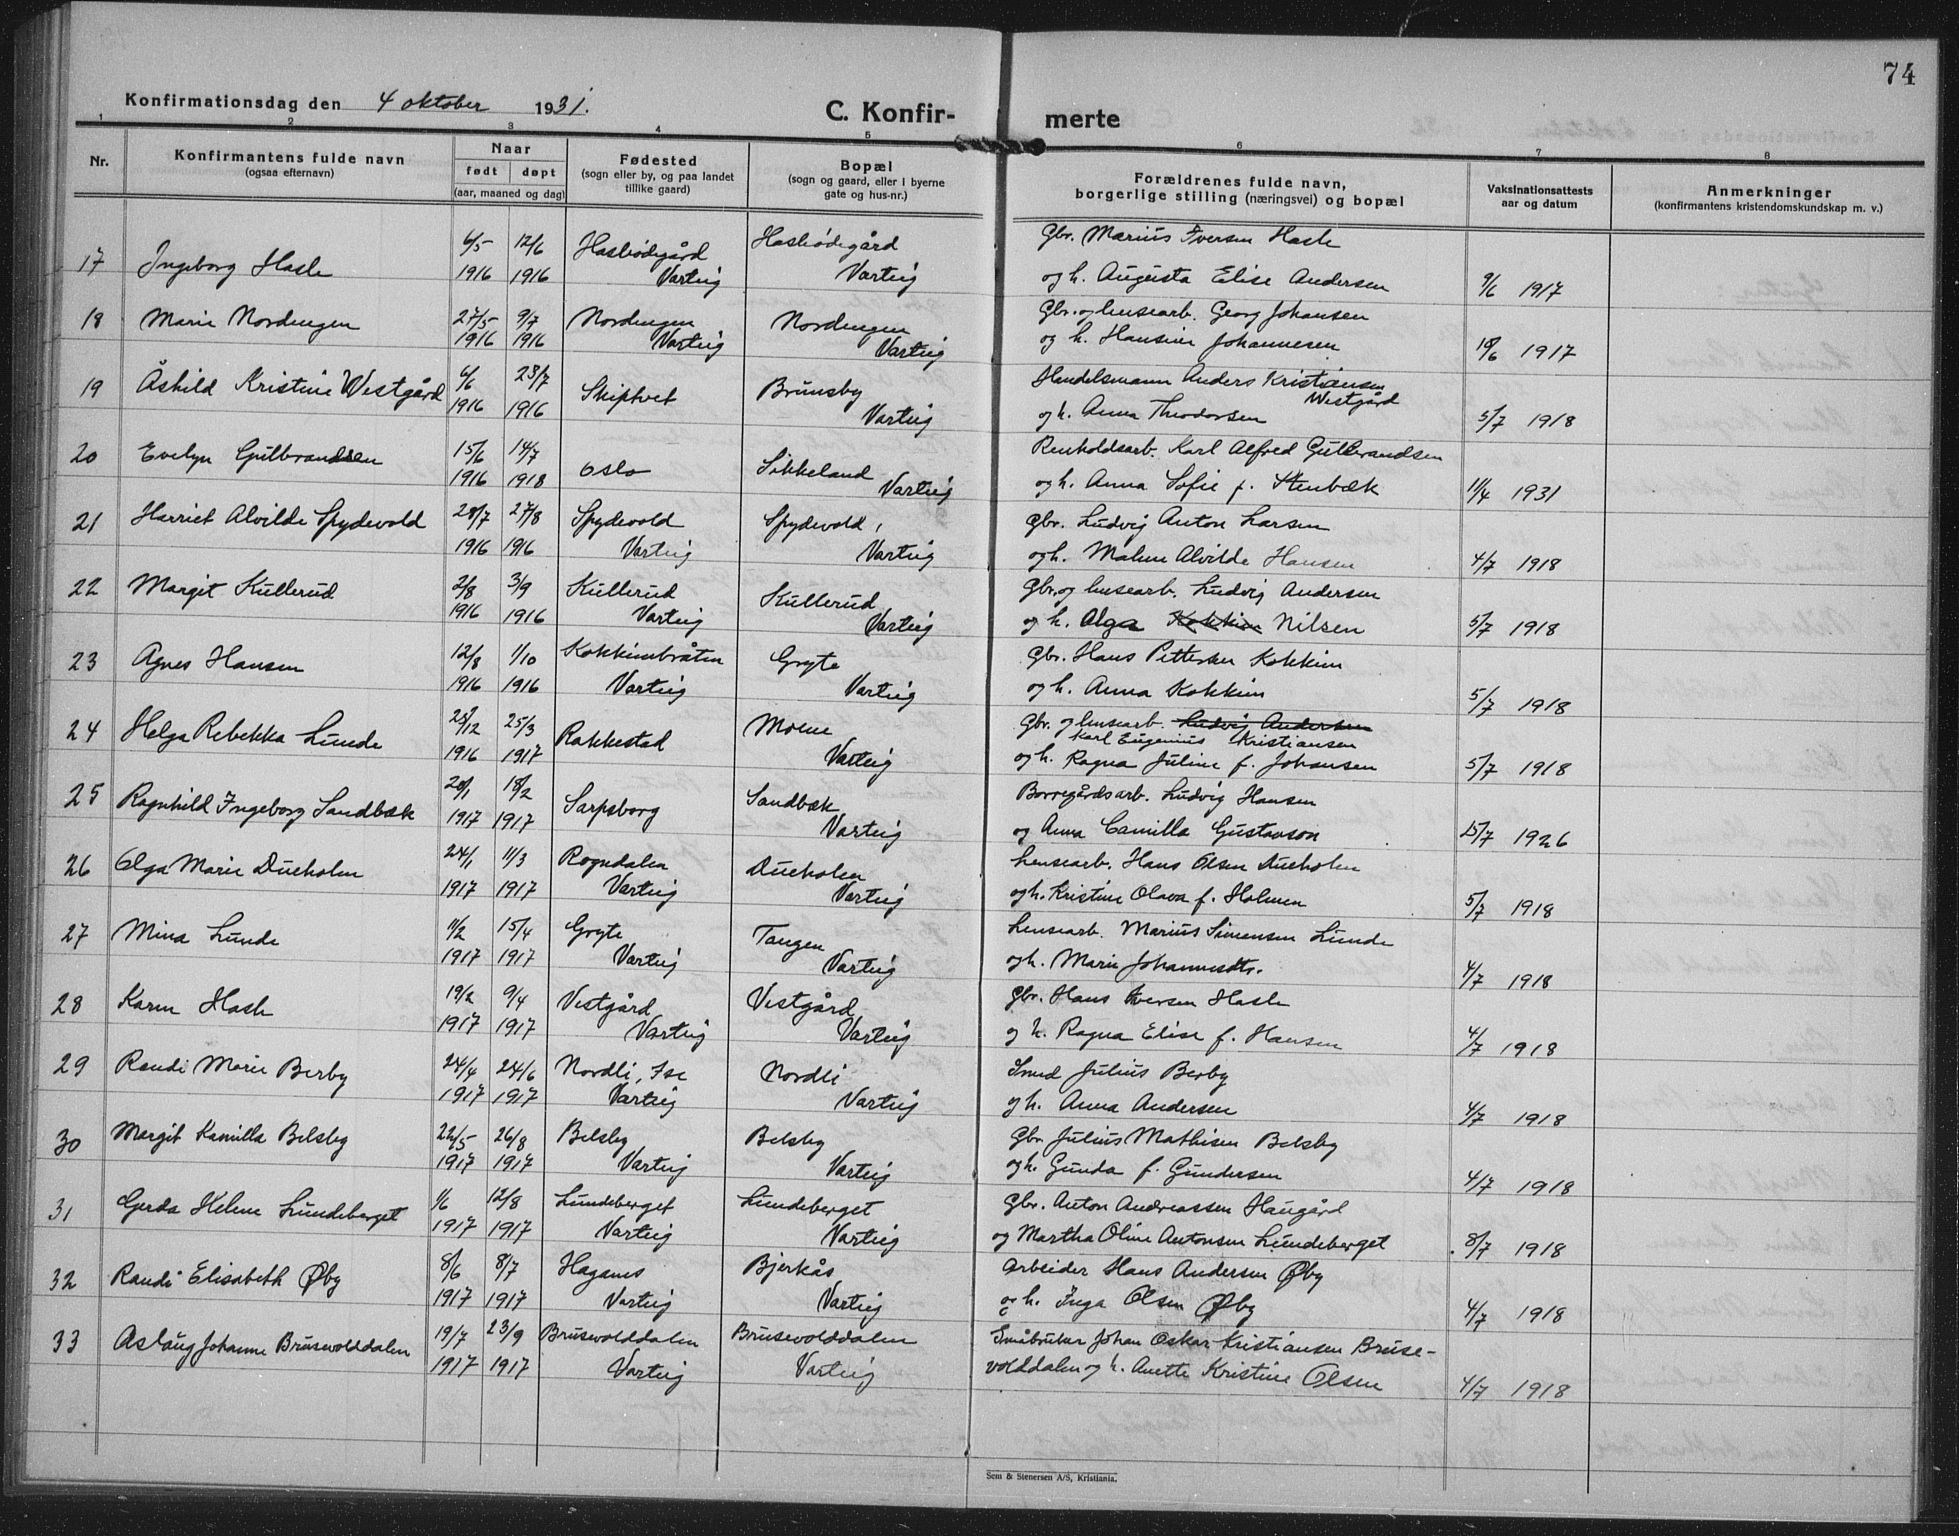 74
Konfirmationsdag den 4 oktober 1931.
C. Konfir- merte
1 2 3 4 5 6 7 8
Nr.
Konfirmantens fulde navn
(ogsaa efternavn)
Naar
født døpt
(aar, maaned og dag)
Fødested
(sogn eller by, og paa landet
tillike gaard)
Bopæl
(sogn og gaard, eller i byerne
gate og hus-nr.)
Forældrenes fulde navn,
borgerlige stilling (næringsvei) og bopæl
Vaksinationsattests
aar og datum
Anmerkninger
(konfirmantens kristendomskundskap m. v.)
17 Ingeborg Hasle 6/5 12/6 Haslødegård Haslødegård Gbr. Marius Iversen Hasle
1916 1916 Varteig Varteig og h. Augusta Elise Andersen 9/6 1917
18 Marie Nordengen 27/5 9/7 Nordengen Nordengen Gbr. og lensearb. Georg Johansen
1916 1916 Varteig Varteig og h. Hansine Johannesen 18/6 1917
19 Åshild Kristine Westgård 6/6 23/7 Skiptvet Brunsby Handelsmann Anders Kristiansen
Westgård
1916 1916 Varteig og h. Anna Theodorsen 5/7 1918
20 Evelyn Gulbrandsen 15/6 14/7 Oslo Sikkeland Renholdsarb. Karl Alfred Gulbrandsen
1916 1918 Varteig og h. Anna Sofie f. Stenbæk 11/4 1931
21 Harriet Alvilde Spydevold 28/7 27/8 Spydevold Spydevold, Gbr. Ludvig Anton Larsen
1916 1916 Varteig Varteig og h. Malene Alvilde Hansen 4/7 1918
22 Margit Kullerud 2/8 3/9 Kullerud Kullerud Gbr. og lensearb. Ludvig Andersen
1916 1916 Varteig Varteig og h. Olga Kokkim Nilsen 5/7 1918
23 Agnes Hansen 12/8 1/10 Kokkimbråten Gryte Gbr. Hans Pettersen Kokkim
1916 1916 Varteig Varteig og h. Anna Kokkim 5/7 1918
24 Helga Rebekka Lunde 25/3 Rakkestad Moene Gbr. og lensearb. Ludvig Andersen
Karl Eugenius Kristiansen
1916 1917 Varteig og h. Ragna Juline f. Johansen 5/7 1918
25 Ragnhild Ingeborg Sandbæk 20/1 18/2 Sarpsborg Sandbæk Borregårdsarb. Ludvig Hansen
1917 1917 Varteig og Anna Camilla Gustavson 15/7 1926
26 Olga Marie Dueholen 24/1 11/3 Rogndalen Dueholen Lensearb. Hans Olsen Dueholen
1917 1917 Varteig Varteig og h. Kristine Olava f. Holmen 5/7 1918
27 Mina Lunde 11/2 15/4 Gryte Tangen Lensearb. Marius Simensen Lunde
1917 1917 Varteig Varteig og h. Marie Johannesdtr. 4/7 1918
28 Karen Hasle 19/2 9/4 Vestgård Vestgård Gbr. Hans Iversen Hasle
1917 1917 Varteig Varteig og h. Ragna Elise f. Hansen 4/7 1918
29 Randi Marie Berby 24/4 24/6 Nordli, Ise Nordli Smed Julius Berby
1917 1917 Varteig Varteig og h. Anna Andersen 4/7 1918
30 Margit Kamilla Belsby 22/5 26/8 Belsby Belsby Gbr. Julius Mathisen Belsby
1917 1917 Varteig Varteig og h. Gunda f. Gundersen 4/7 1918
31 Gerda Helene Lundeberget 1/6 12/8 Lundeberget Lundeberget Gbr. Anton Andreassen Haugård
1917 1917 Varteig Varteig og Martha Oline Antonsen Lundeberget 8/7 1918
32 Randi Elisabeth Øby 8/6 8/7 Haganes Bjerkås Arbeider Hans Andersen Øby
1917 1917 Varteig Varteig og h. Inga Olsen Øby 4/7 1918
33 Aslaug Johanne Brusevolddalen 19/7 23/9 Brusevolddalen Brusevolddalen Småbruker Johan Oskar Kristiansen Bruse-
1917 1917 Varteig Varteig volddalen og h. Anette Kristine Olsen 4/7 1918
Sem & Stenersen A/S, Kristiania.